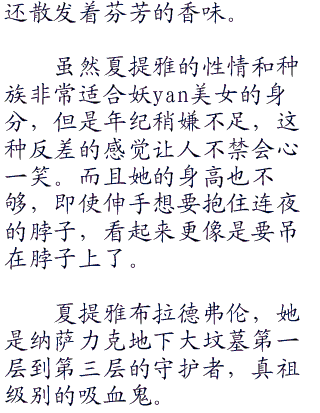 还散发着芬芳的香味。
虽然夏提雅的性情和种
族非常适合妖yan美女的身
分，但是年纪稍嫌不足，这
种反差的感觉让人不禁会心
一笑。而且她的身高也不
够，即使伸手想要抱住连夜
的脖子，看起来更像是要吊
在脖子上了。
夏提雅布拉德弗伦，她
是纳萨力克地下大坟墓第一
层到第三层的守护者，真祖
级别的吸血鬼。